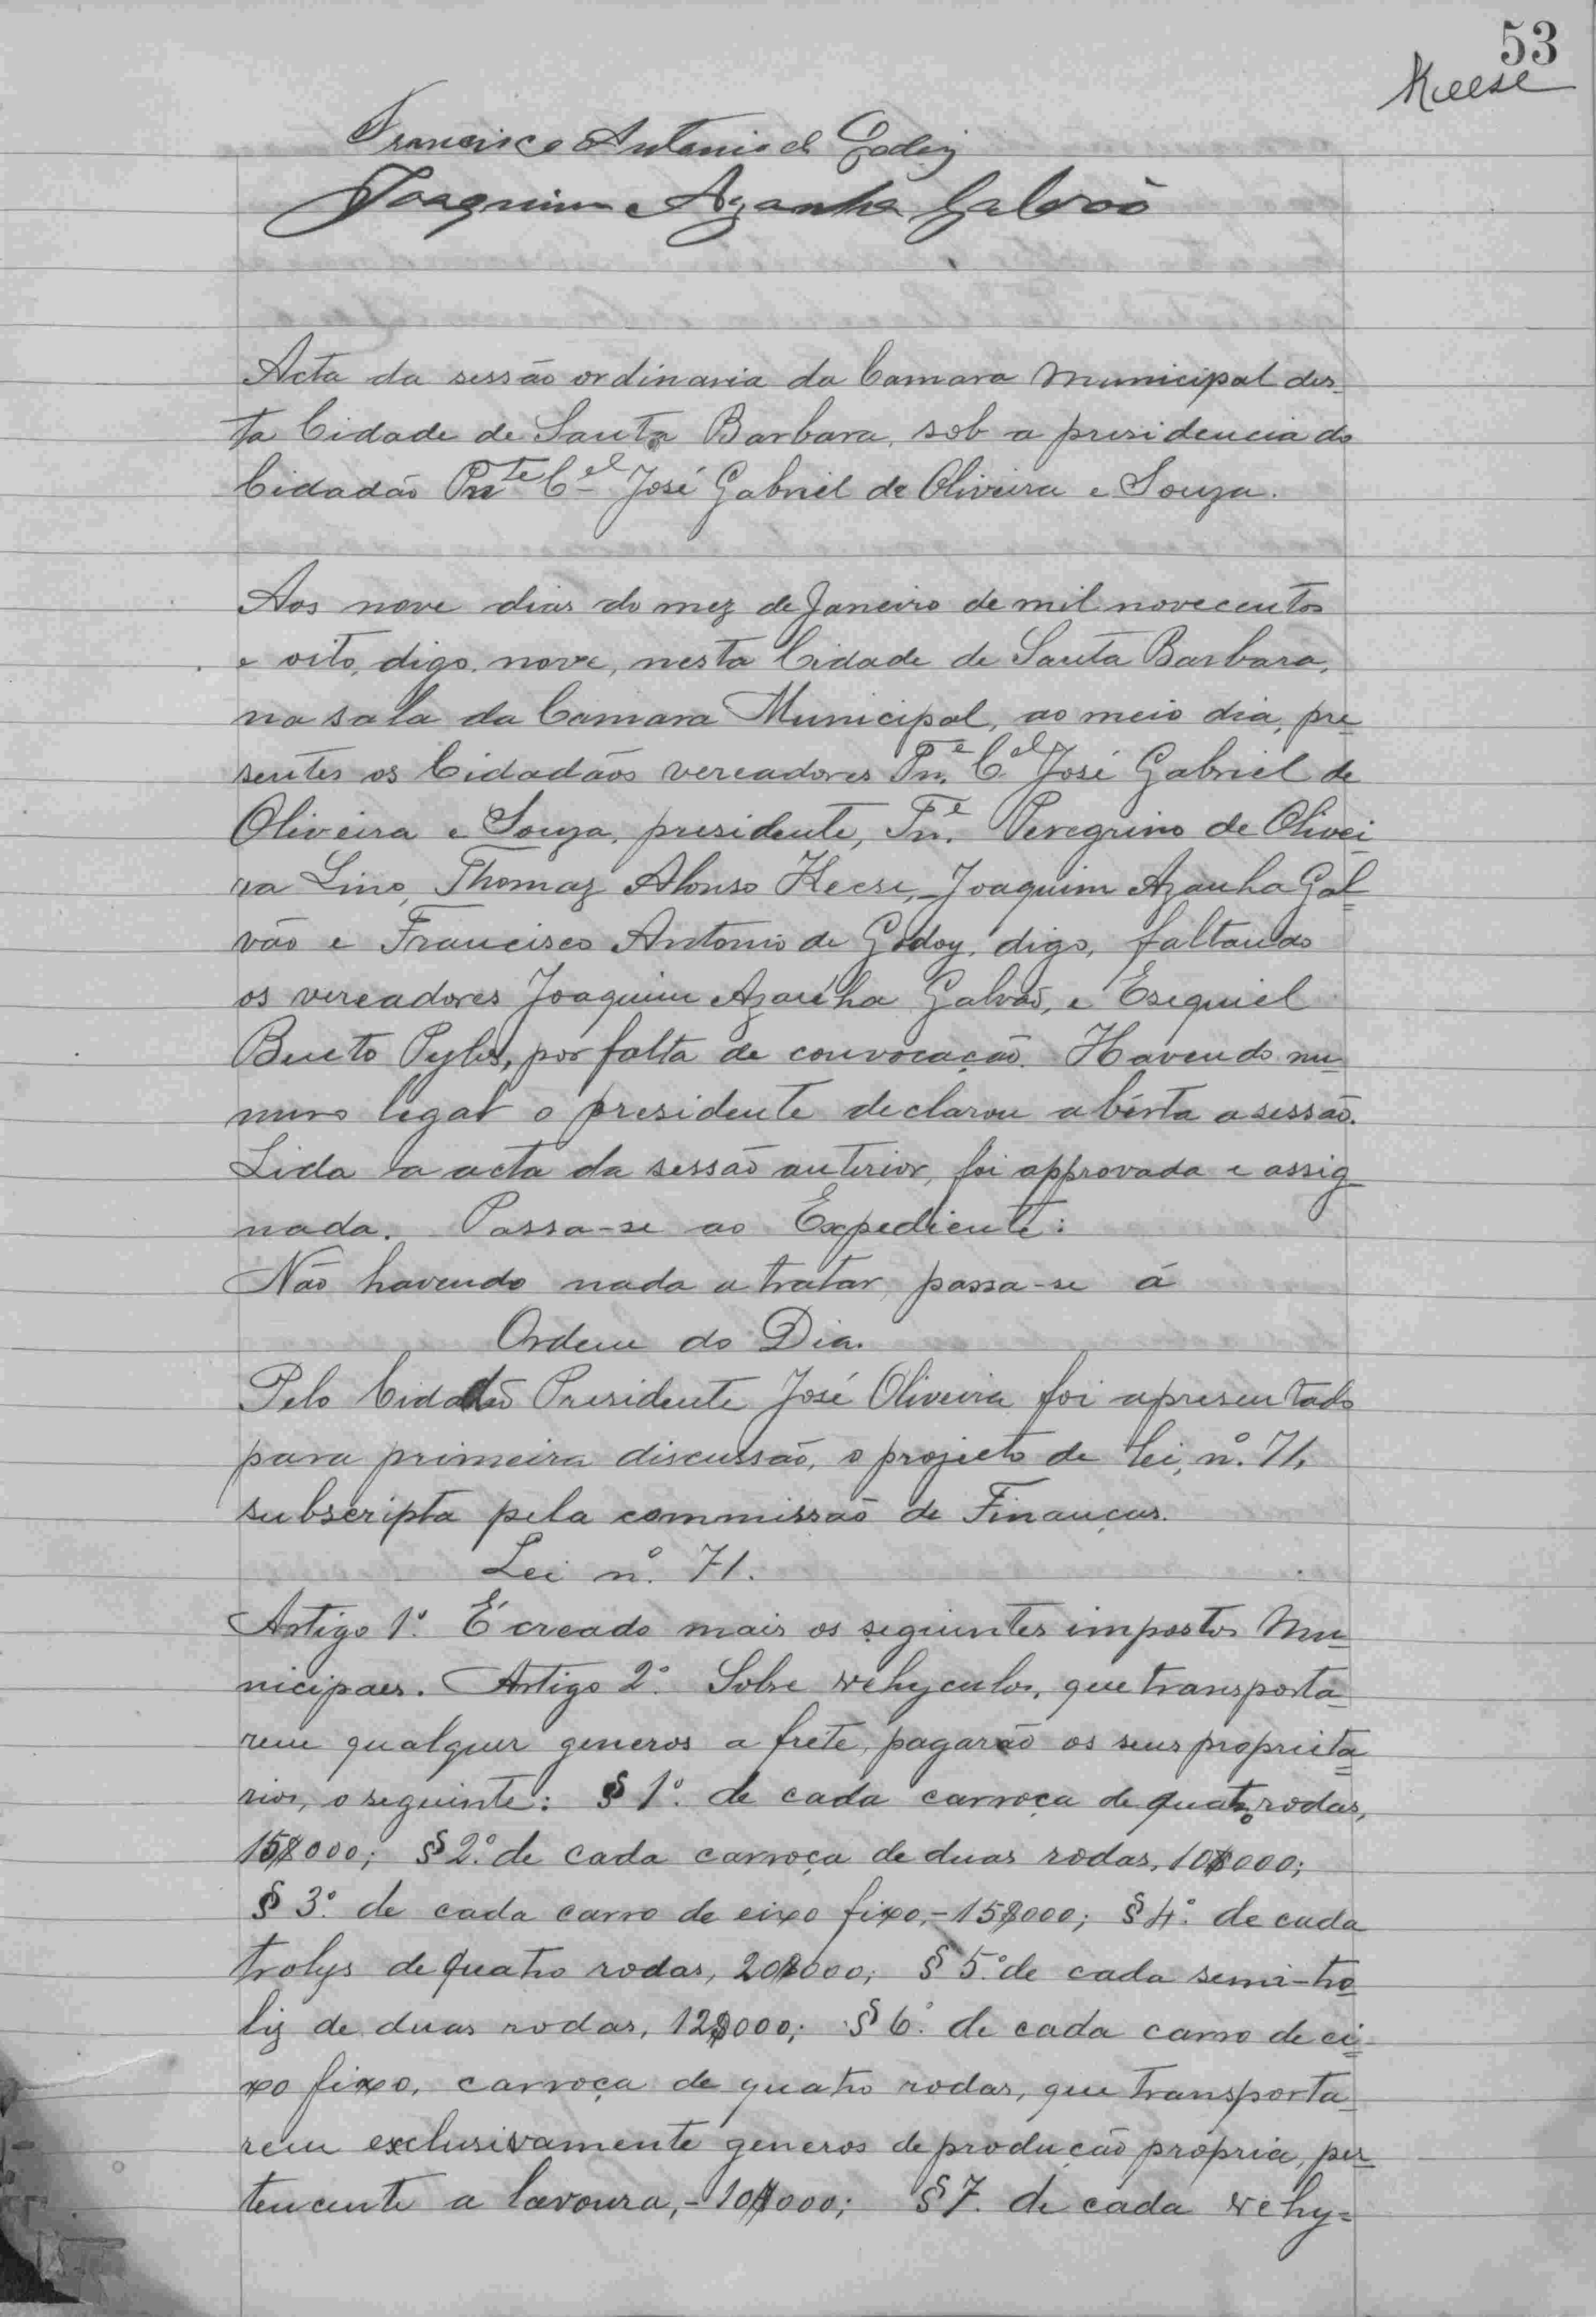 53
Keese
Francisco Antonio de Godoy
Joaquim Azanha Galvão
Acta da sessão ordinaria da Camara Municipal des-
ta Cidade de Santa Barbara, sob a presidencia do
Cidadão Tnte Cel José Gabriel de Oliveira e Souza.
Aos nove dias do mez de Janeiro de mil novecentos
e oito, digo, nove, nesta Cidade de Santa Barbara,
na sala da Camara Municipal, ao meio dia, pre-
sentes os Cidadãos vereadores Tne. Cel José Gabriel de
Oliveira e Souza, presidente, Tne. Peregrino de Olivei-
ra Lino, Thomaz Alonso Keese, Joaquim Azanha Gal=
vão e Francisco Antonio de Godoy, digo, faltando
os vereadores Joaquim Azanha Galvão, e Esequiel
Bueto Pyles, por falta de convocação. Havendo nu-
mero legal o presidente declarou abérta a sessão.
Lida a acta da sessão anterior, foi approvada e assig-
nada. Passa-se ao Expediente:
Não havendo nada a tratar, passa-se á
Ordem do Dia.
Pelo Cidadão Presidente José Oliveira foi apresentado
para primeira discussão, o projecto de Lei, nº. 71,
subscripta pela commissão de Finanças.
Lei nº. 71.
Artigo 1º. É creado mais os seguintes impostos Mu-
nicipaes. Artigo 2º. Sobre vehyculos, que transporta-
rem qualquer generos a frete, pagarão os seus proprieta=
rios, o seguinte: § 1º. de cada carroça de quatro rodas,
15$000; § 2º. de cada carroça de duas rodas, 10$000;
§ 3º. de cada carro de eixo fixo,-15$000; § 4º. de cada
trolys de quatro rodas, 20$000; § 5º. de cada semi-tro-
liz de duas rodas, 12$000; § 6º. de cada carro de ei=
xo fixo, carroça de quatro rodas, que transporta-
rem exclusivamente generos de producção propria, per-
tencente a lavoura,-10$000; § 7. de cada vehy=